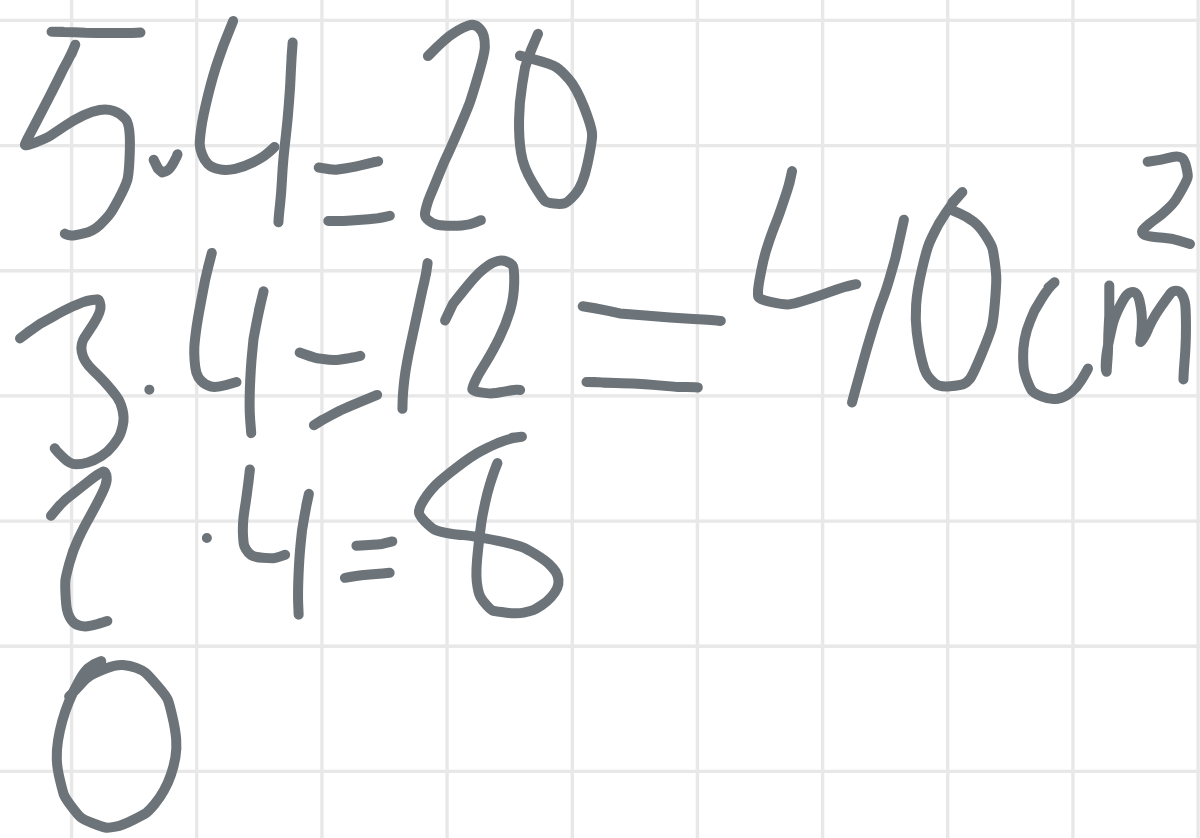 5·4=20
3·4=12=40cm²
2·4=8
0